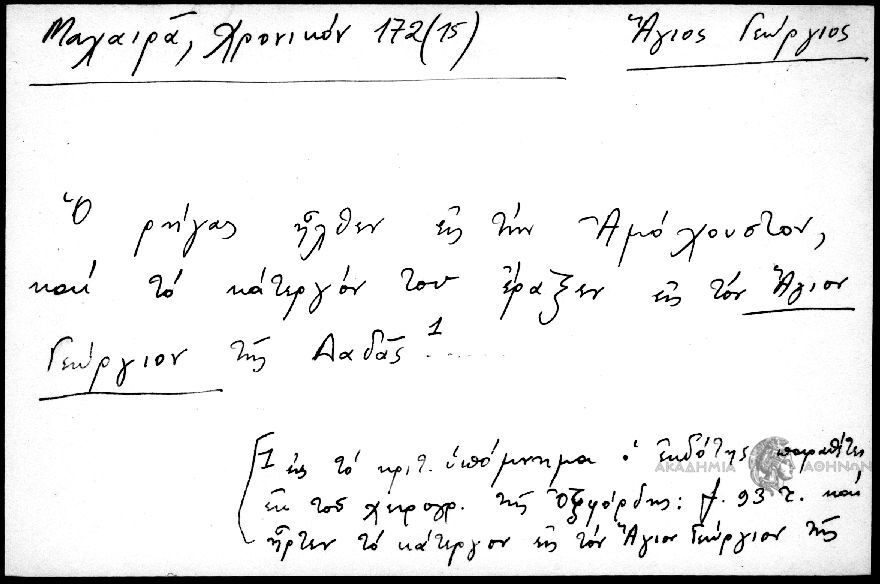 Μαχαιρᾶ, Χρονικόν 172(15) Ἅγιος Γεώργιος
Ὁ ρήγας ἦλθεν εἰς τήν Ἀμόχουστον,
καί τό κάτεργόν του ἐράξεν εἰς τόν Ἅγιον
Γεώργιον τῆς Λαδᾶς 1.....
[1 εἰς τό κριτ. ὑπόμνημα ὁ ἐκδότης παραθέτει
ΑΚΑΔΗΜΙΑ ΑΘΗΝΩΝ
ἐκ τοῦ χειρογρ. τῆς Ὀξφόρδης: f. 93 r. καί
ἦρτεν τό κάτεργον εἰς τόν Ἅγιον Γεώργιον τῆς